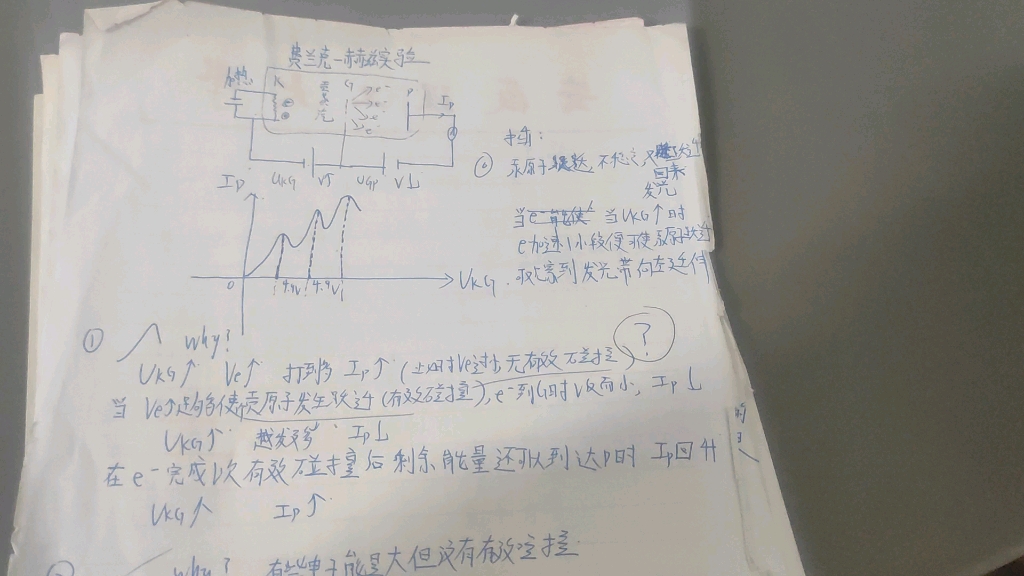 费兰克-赫兹实验
K
G
P
Ip
e⁻
e⁻
e⁻
UKG V↑ UGP V↓
Ip
0
4.9V
4.9V
UKG
⑥ 汞原子
发光
当 UKG↑时
e加速1小段便可使汞原子跃迁
观察到发光带向左延伸
① why?
?
UKG↑ Ve↑ 打到多 Ip↑ (此时Ve过小无有效碰撞)
当 Ve↑足够使汞原子发生跃迁(有效碰撞), e⁻到G时V反而小, Ip↓
UKG↑ 越发多 Ip↓
在e⁻完成1次有效碰撞后剩余能量还可以到达P时 Ip回升
UKG↑ Ip↑
why? 有些电子能量大但没有有效碰撞